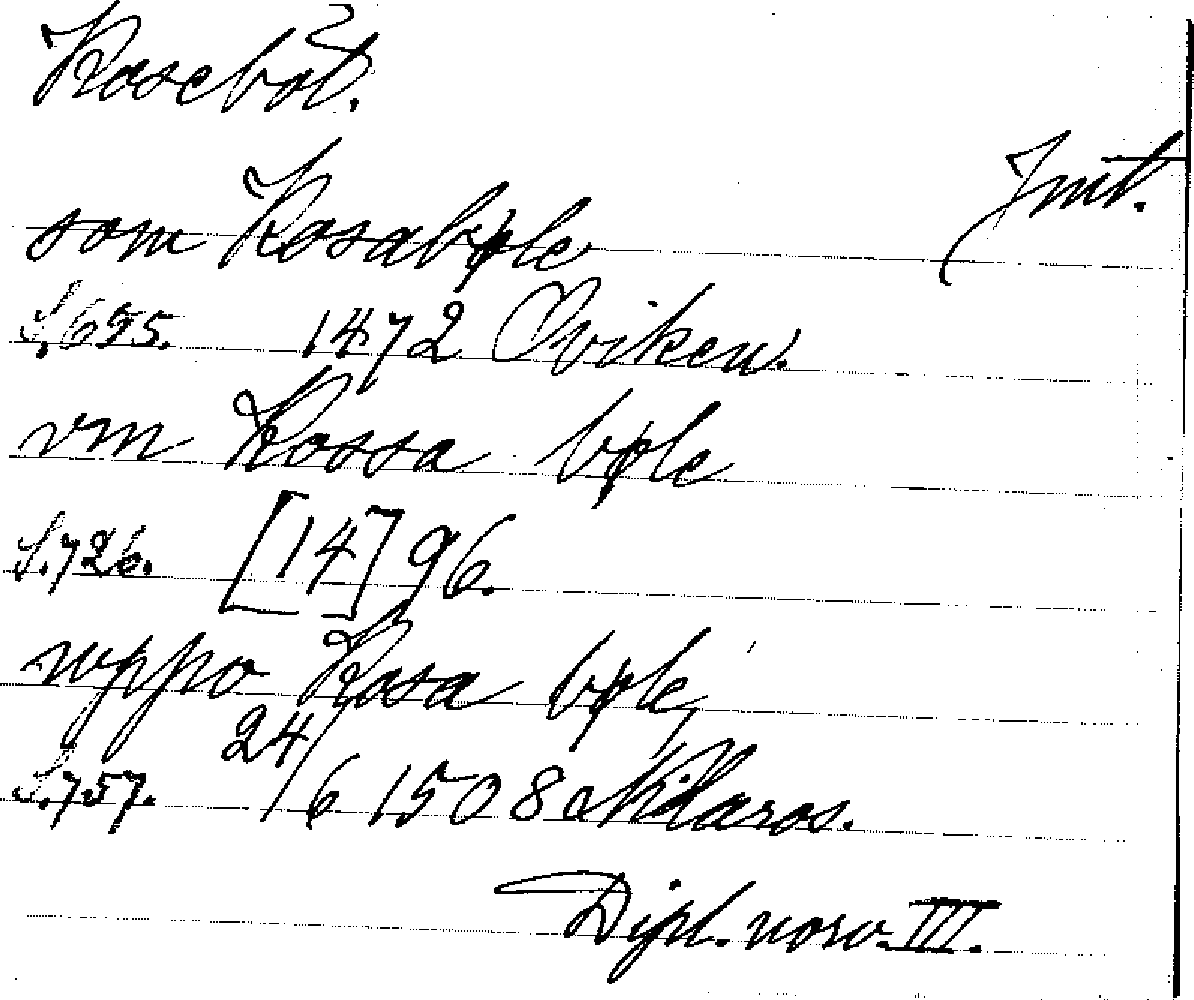 Kosebøl.
Jmt.
som Kosabøle
S. 695. 1472 Oviken.
vm Kossa bøle
S. 726. [14]96.
wppo Kosa bøle,
S. 757. 24/6 1508 Nidaros.
Dipl. norv. III.